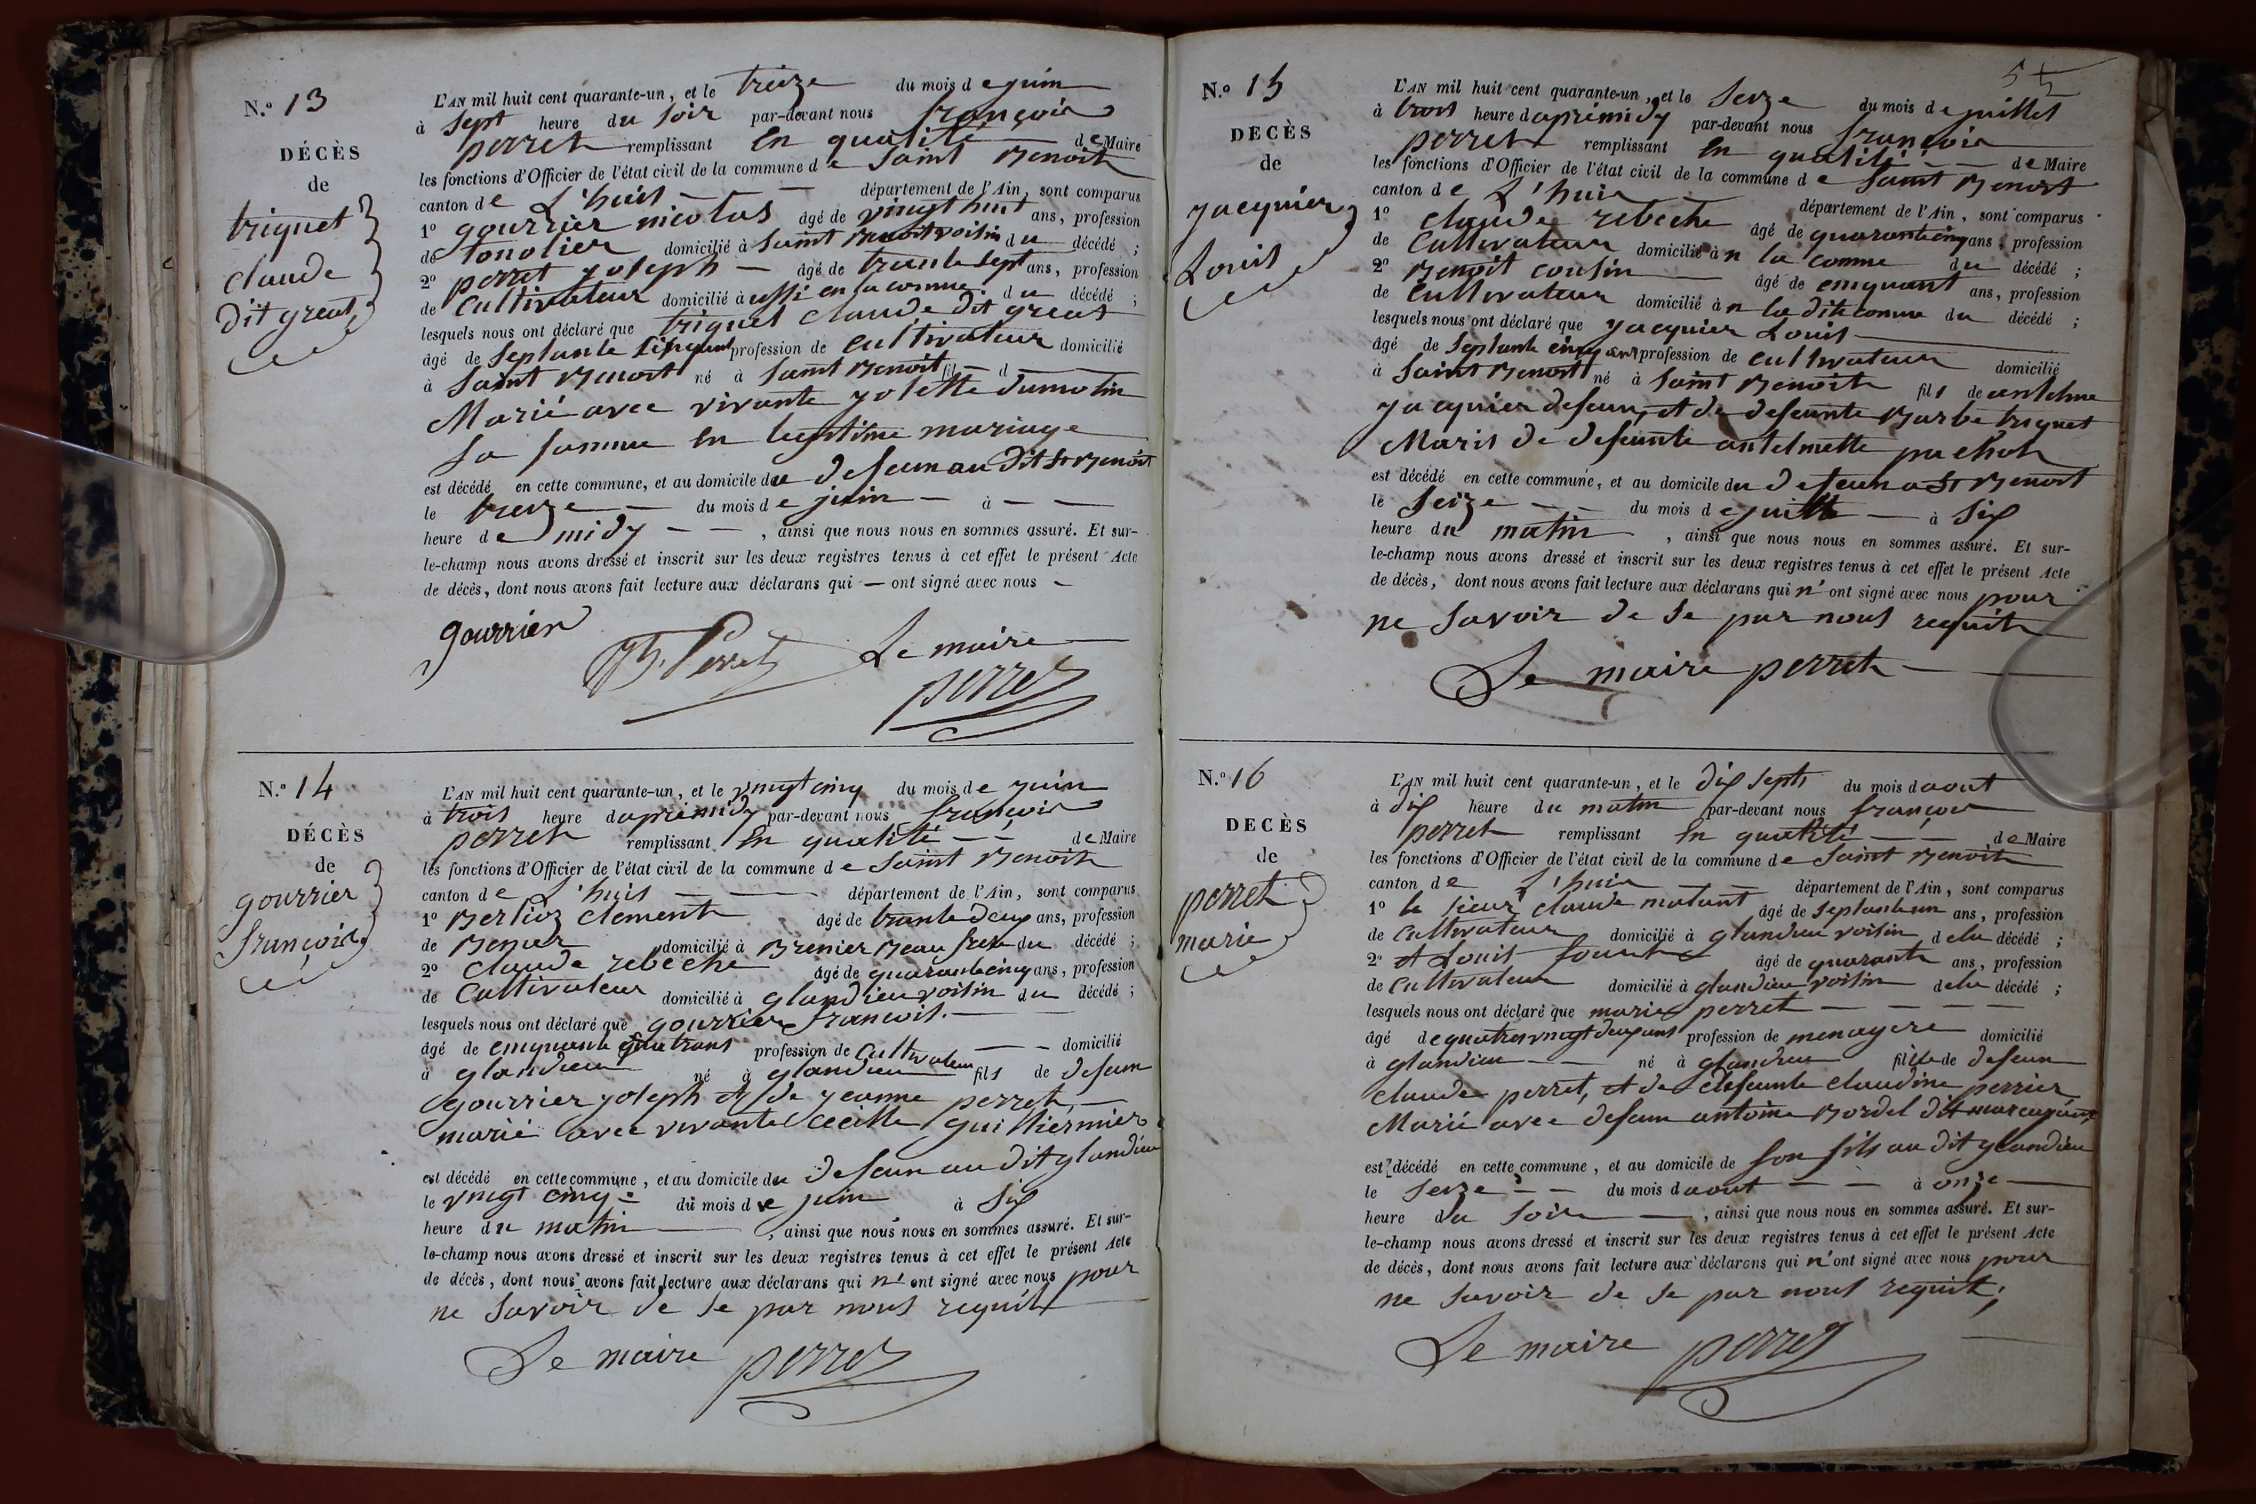 N.º 13
DÉCÈS
de
triquet
claude
dit great
L'AN mil huit cent quarante-un, et le treize du mois de juin
à sept heure du soir par-devant nous françois
perret remplissant en qualité de Maire
les fonctions d'Officier de l'état civil de la commune de saint Benoit
canton de L'huis département de l'Ain, sont comparus
1º gourrier nicolas âgé de vingt huit ans, profession
de tonolier domicilié à saint Benoit voisin du décédé ;
2º perret joseph âgé de trente sept ans, profession
de cultivateur domicilié à ussi en sa comune du décédé ;
lesquels nous ont déclaré que triquet claude dit great
âgé de septante cinq ans profession de cultivateur domicilié
à saint Benoit né à saint Benoit fil d
Marié avec vivante jolette dumolin
sa famme en legitime mariage
est décédé en cette commune, et au domicile du defeun au dit st Benoit
le treize du mois de juin à
heure de midy , ainsi que nous nous en sommes assuré. Et sur-
le-champ nous avons dressé et inscrit sur les deux registres tenus à cet effet le présent Acte
de décès, dont nous avons fait lecture aux déclarans qui ont signé avec nous
gourrier
Jh. Perret Le maire
perret
N.º 14
DÉCÈS
de
gourrier
françois
L'AN mil huit cent quarante-un, et le vingt cinq du mois de juin
à trois heure d'aprèmidy par-devant nous françois
perret remplissant en qualité de Maire
les fonctions d'Officier de l'état civil de la commune de saint Benoit
canton de L'huis département de l'Ain, sont comparus
1º Berlioz clement âgé de trante deux ans, profession
de domicilié à Brenier Beau frere du décédé ;
2º claude rebeche âgé de quarante cinq ans, profession
de cultivateur domicilié à glandieu voisin du décédé ;
lesquels nous ont déclaré que gourrier francois
âgé de cinquante quatrans profession de cultivateur domicilié
à glandieu né à glandieu fils de defeun
gourrier joseph et de jeanne perret
marié avec vivante cécille guilliermier
est décédé en cette commune, et au domicile du defeun au dit glandieu
le vingt cinq du mois de juin à six
heure du matin , ainsi que nous nous en sommes assuré. Et sur-
le-champ nous avons dressé et inscrit sur les deux registres tenus à cet effet le présent Acte
de décès, dont nous avons fait lecture aux déclarans qui n'ont signé avec nous pour
ne savoir de se par nous requit
Le maire perret
N.º 15
DECÈS
de
jacquier
Louis
L'AN mil huit cent quarante-un, et le seize du mois de juillet
à trois heure d'aprèmidy par-devant nous françois
perret remplissant en qualité de Maire
les fonctions d'Officier de l'état civil de la commune de saint Benoit
canton de L'huis département de l'Ain, sont comparus
1º claude rebeche âgé de quarantecinq ans, profession
de cultivateur domicilié àn la comne du décédé ;
2º Benoit cousin âgé de cinquant ans, profession
de cultivateur domicilié àn la dite comune du décédé ;
lesquels nous ont déclaré que jacquier Louis
âgé de septante cinq ans profession de cultivateur domicilié
à saint Benoit né à saint Benoit fils de antelme
jacquier defeun, et de defeunte Barbe triquet
Maris de defeunte antelmette pachot
est décédé en cette commune, et au domicile du defeun a St Benoit
le seize du mois de juillt à six
heure du matin , ainsi que nous nous en sommes assuré. Et sur-
le-champ nous avons dressé et inscrit sur les deux registres tenus à cet effet le présent Acte
de décès, dont nous avons fait lecture aux déclarans qui n'ont signé avec nous pour
ne savoir de se par nous requit
Le maire perret
N.º 16
DECÈS
de
perret
marie
L'AN mil huit cent quarante-un, et le dix sept du mois d'aout
à dix heure du matin par-devant nous françois
perret remplissant en qualité de Maire
les fonctions d'Officier de l'état civil de la commune de saint Benoit
canton de L'huis département de l'Ain, sont comparus
1º le sieur claude matant âgé de septanteun ans, profession
de cultivateur domicilié à glandieu voisin de la décédé ;
2º et Louis âgé de quarante ans, profession
de cultivateur domicilié à glandieu voisin de la décédé ;
lesquels nous ont déclaré que marie perret
âgé de quatrevingt deux ans profession de menagere domicilié
à glandieu né à glandieu fille de defeun
claude perret, et de defeunte claudine perrier
Marié avec defeun antoine Bordel dit
est décédé en cette commune, et au domicile de son fils au dit glandieu
le seize du mois d'aout à onze
heure du soir , ainsi que nous nous en sommes assuré. Et sur-
le-champ nous avons dressé et inscrit sur les deux registres tenus à cet effet le présent Acte
de décès, dont nous avons fait lecture aux déclarans qui n'ont signé avec nous pour
ne savoir de se par nous requit,
Le maire perret